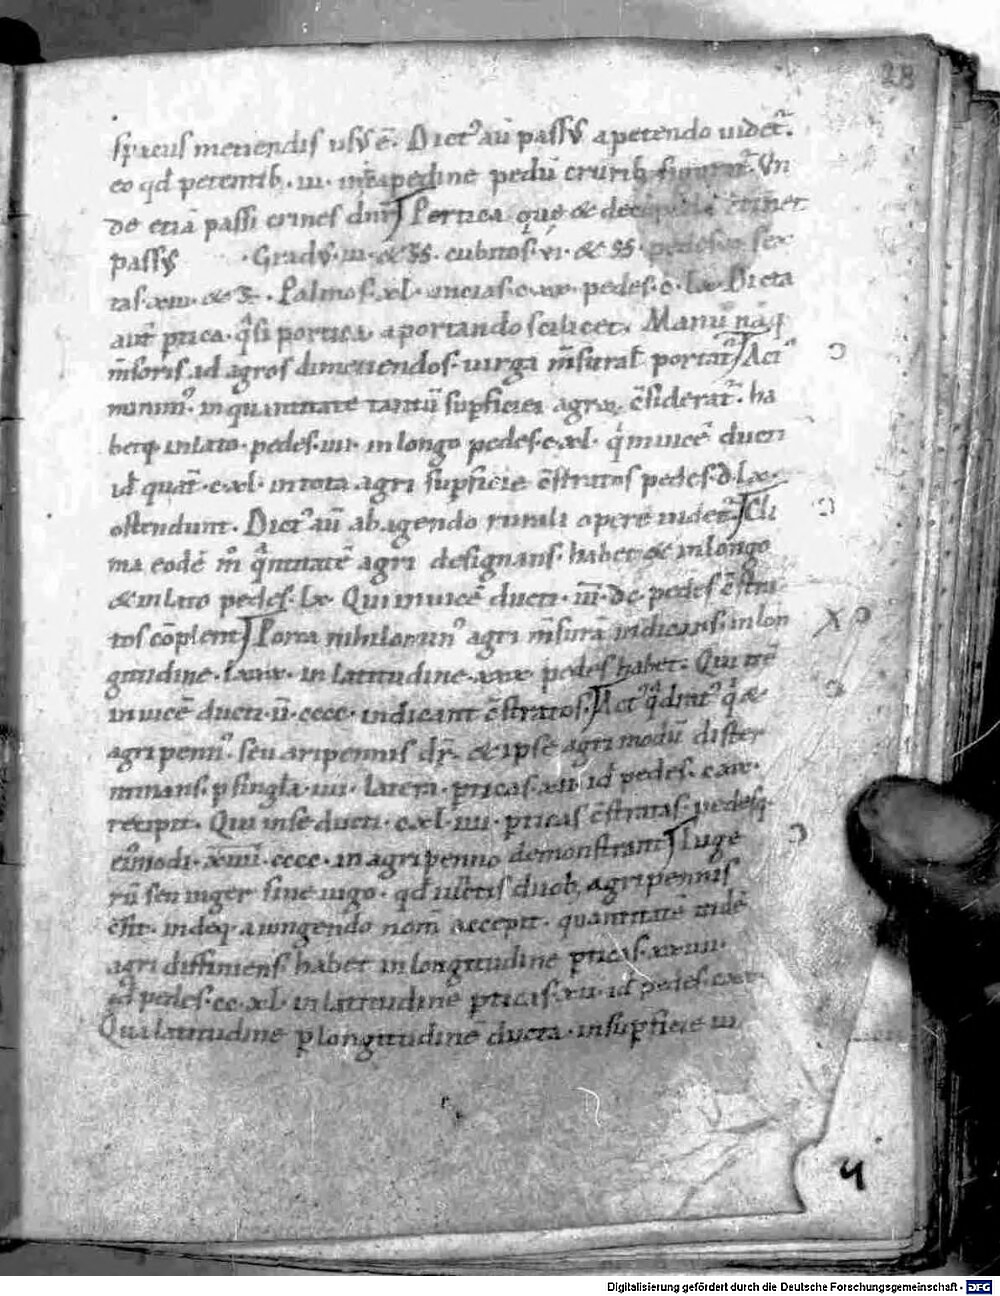 28
spacus metiendis usꝰ ē. Dictꝰ aū passꝰ a petendo uidet᷑.
eo qđ petentib. in pedū crurib
de etiā passi crines dnr̄ Pertica quę & decempeda
passꝰ Gradꝰ .iii. & ss. cubitos .vi. & ss. pedes
tas .xiii. & Palmos .xl. uncias pedes Dicta
aut̄ ptica. qͣsi portica a portando scilicet. Manu
m̄soris ad agros dimetiendos. uirga m̄surał portat᷑ Actꝰ
minimꝰ. in quantitate tantū supficiei agroꝝ c̄siderat᷑. ha
betq; in lato. pedes .iiii. in longo pedes .c.xl. q̇ inuicē ducti
id quat̄ .c.xl. in tota agri supficie c̄stratos pedes .d.lx.
ostendunt. Dictꝰ aū ab agendo rurali opere uidet᷑ Cli
ma eodē m̊ qͣntitatē agri designans. habet & in longo
& in lato pedes .lx. Qui inuicē ducti .iii. dc. pedes c̄stra
tos cōplent Porca nihilominꝰ agri m̄surā indicans. in lon
gitudine .lxxx. in latitudine .xxx. pedes habet. Qui itē
inuicē ducti .ii. cccc. indicant c̄stratos. Actꝰ qͣdratꝰ qͥ &
agripennꝰ. seu aripennis dr̄. & ipse agri modū dister
minans. p singła .iiii. latera. pticas .xii. id pedes .c.xx.
recipit. Qui in se ducti .c.xl.iiii. pticas c̄stratas. pedesq.
ei᷒modi .xiiii. cccc. in agripenno demonstrant Iuge
rū seu iuger sine iugo. qđ iunctis duob. agripennis
c̄stit. indeq. a iungendo nom̄ accepit. quantitatē itidē
agri diffiniens. habet in longitudine pticas .xxiiii.
id pedes .cc.xl. in latitudine pticas .xii. id pedes .c.xx.
Qua latitudine p longitudinē ducta. in supficie iu
4
Digitalisierung gefördert durch die Deutsche Forschungsgemeinschaft - DFG